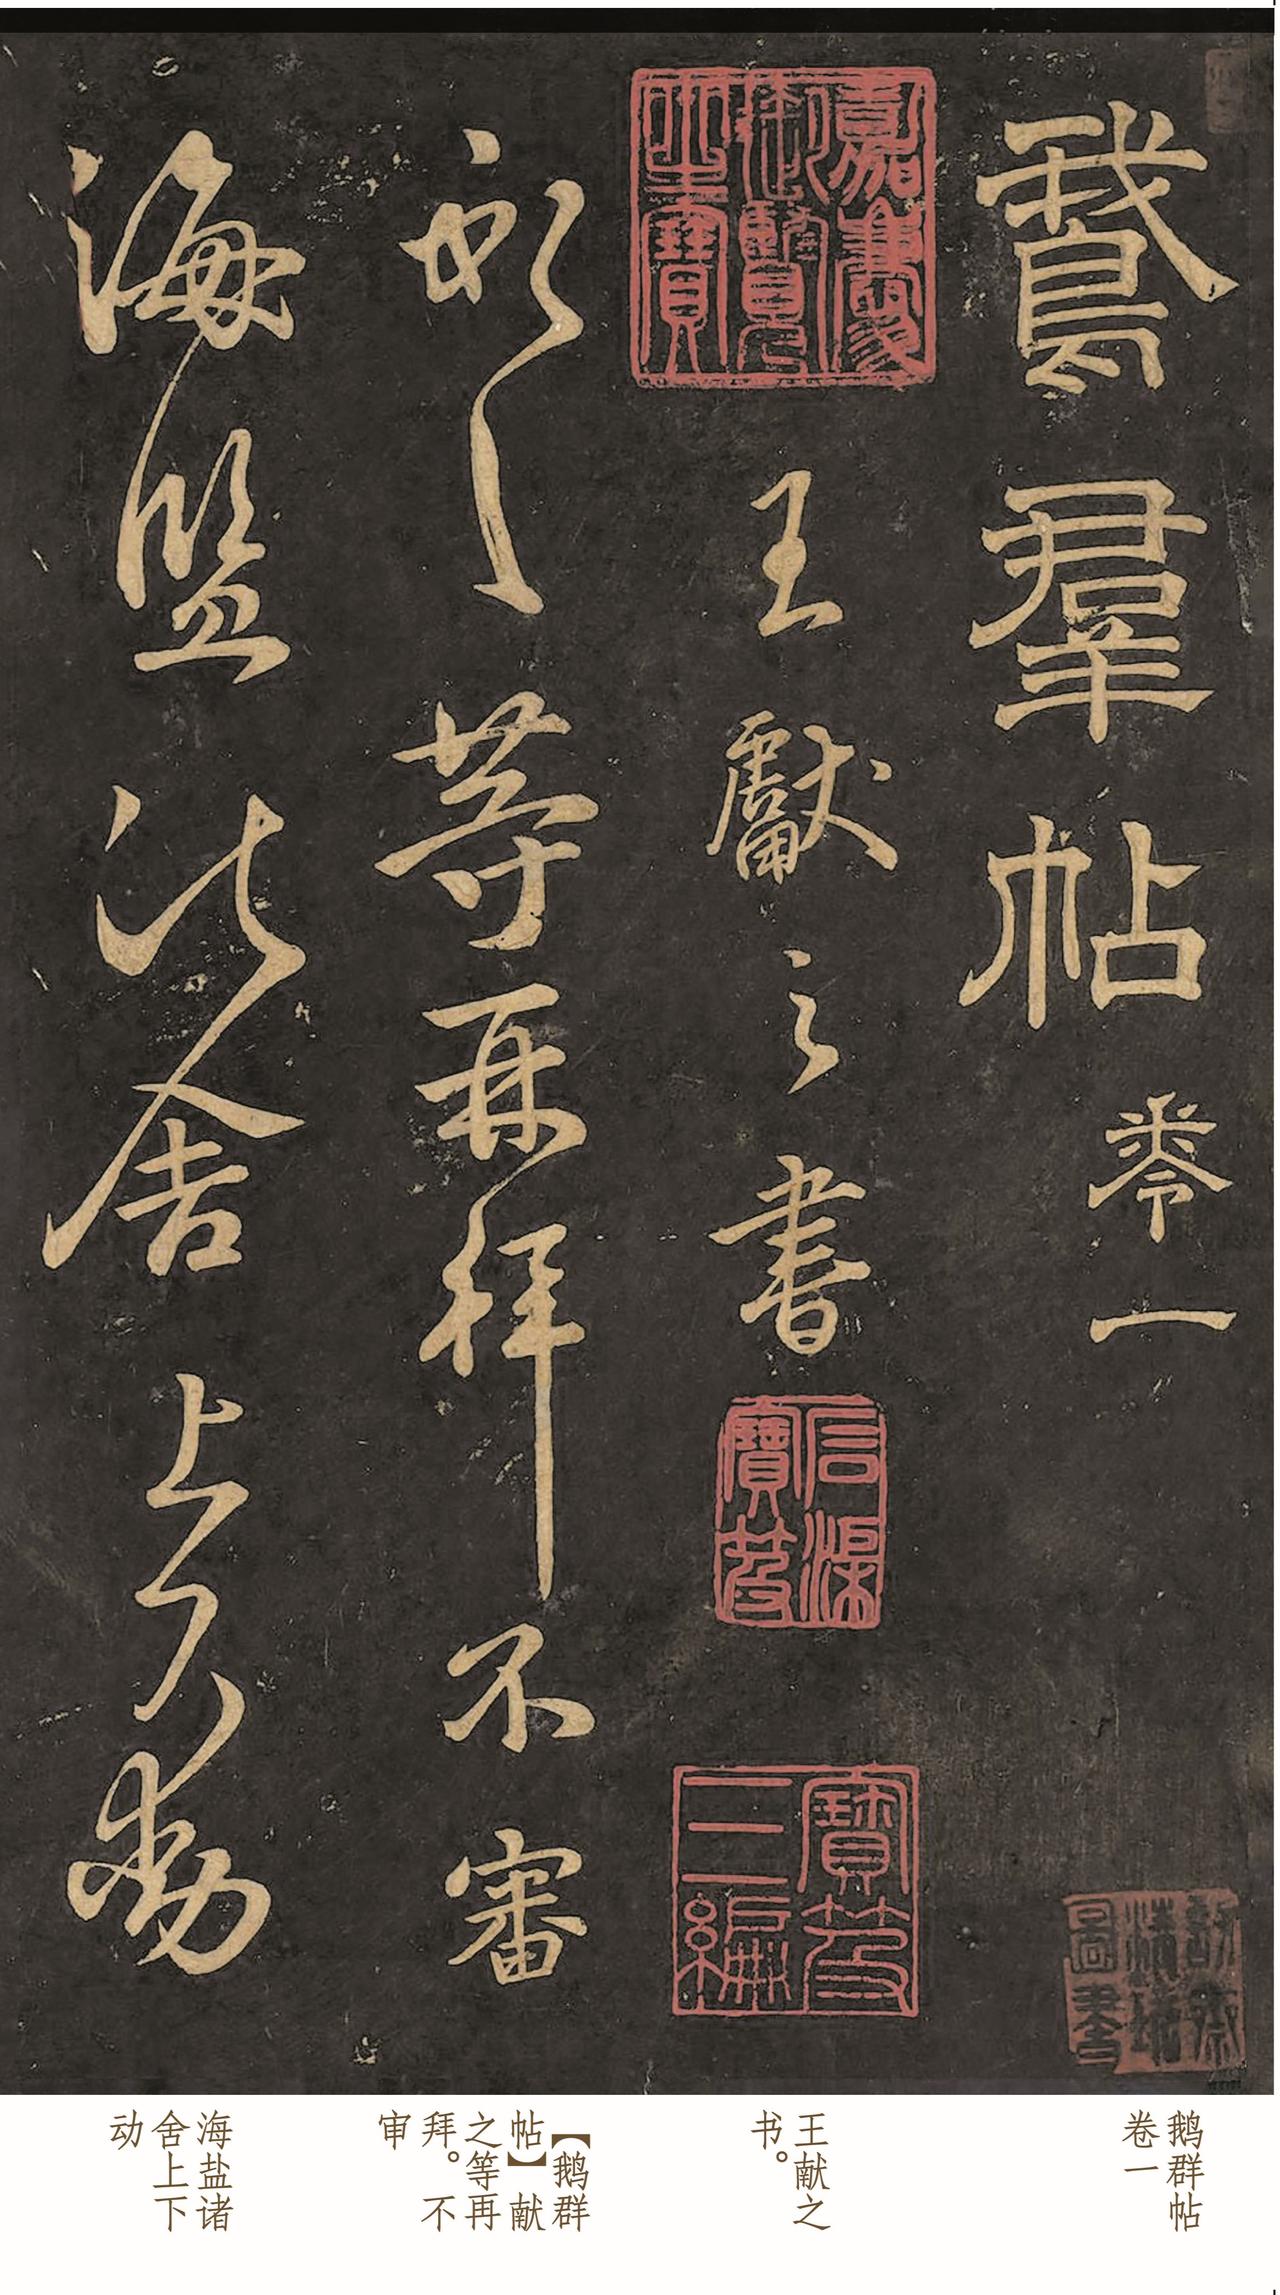 鵞羣帖 卷一
嘉慶
御覽
之寶
王獻之書
石渠
寶笈
寶笈
三編
獻之等再拜不審
海鹽諸舍上下動
鹅群帖
卷一
王献之
书。
【鹅群
帖】献
之等再
拜。不
审
海盐诸
舍上下
动